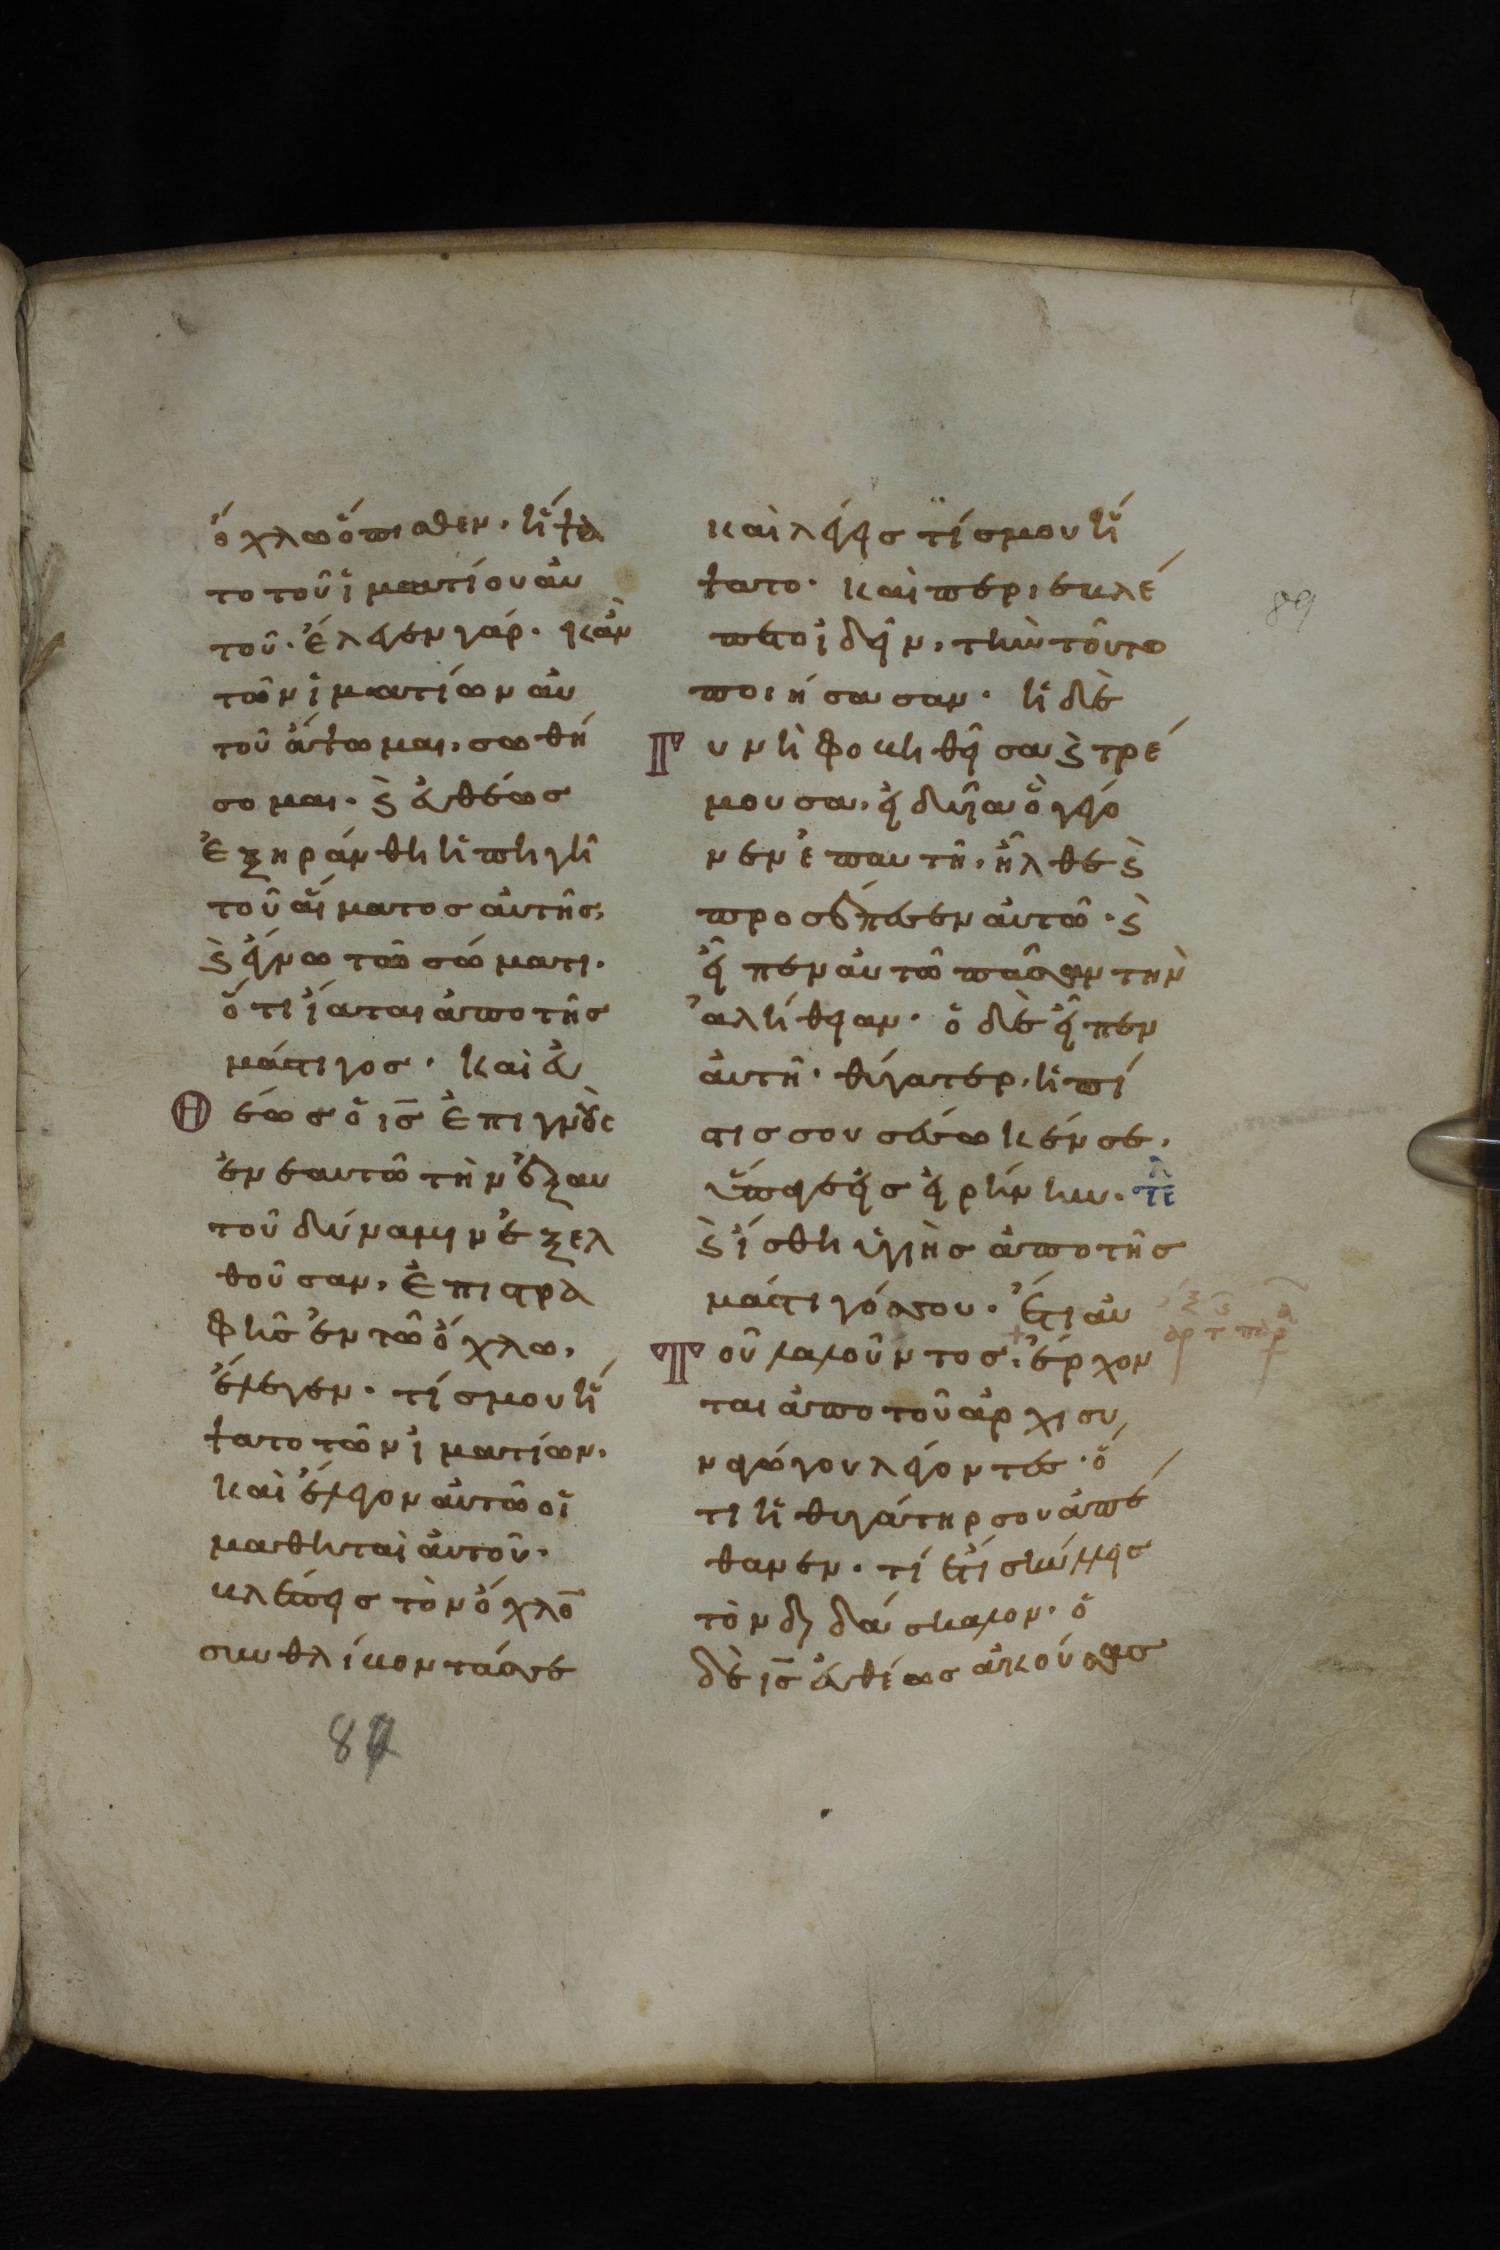 ὄχλω ὄπισθεν. ἥψα
το τοῦ ἱματίου αὐ
τοῦ. ἔλεγεν γὰρ. κἂν
τῶν ἱματίων αὐ
τοῦ ἅψωμαι, σωθή
σομαι. ϛ̀ εὐθέως
ἐξηράνθη ἡ πηγὴ
τοῦ αἵματος αὐτῆς,
ϛ̀ ἔγνω τῶ σώματι.
ὅτι ἴαται ἀπὸ τῆς
μάστιγος. Καὶ εὐ
Θέως ὁ ις̅ ἐπιγνοὺς
ἐν ἑαυτῶ τὴν ἐξ αυ
τοῦ δύναμιν ἐξελ
θοῦσαν, ἐπιστρα
φεὶς ἐν τῶ ὄχλω,
ἔλεγεν. τίς μου ἥ
ψατο τῶν ἱματίων.
καὶ ἔλεγον αὐτῶ οἱ
μαθηταὶ αὐτοῦ.
βλέπεις τὸν ὄχλο̅
συνθλίβοντά σε
καὶ λέγεις τίς μου ἥ
ψατο. καὶ περιεβλέ
πετο ἰδεῖν, τὴν τοῦτο
ποιήσασαν. ἡ δὲ
Γυνὴ φοβηθεῖσα ϛ̀ τρέ
μουσα, εἰδυῖα ὃ γέγο
νεν ἐπ αυτῆ, ἦλθε ϛ̀
προσέπεσεν αὐτῶ. ϛ̀
εἶπεν αὐτῶ πᾶσαν τὴν
ἀλήθειαν. ὁ δὲ εἶπεν
αὐτῆ. θύγατερ, ἡ πί
στις σου σέσωκέν σε,
ὕπαγε εἰς εἰρήνην. τε^λ
ϛ̀ ἴσθι ὑγιὴς ἀπὸ τῆς
μάστιγός σου. Ἔτι αὐ
Τοῦ λαλοῦντος, ἔρχον
ται ἀπὸ τοῦ ἀρχισυ
ναγώγου λέγοντες. ὅ
τι ἡ θυγάτηρ σου ἀπέ
θανεν. τί ἔτι σκύλλεις
τὸν διδάσκαλον. ὁ
δὲ ις̅ εὐθέως ἀκούσας
89
87